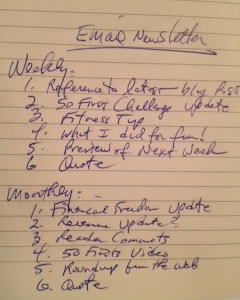 Email Newsletter
Weekly:
1. Reference to latest blog Post
2. 50 First Challenge update
3. Fitness Tip
4. What I did for fun!
5. Preview of Next Week
6. Quote
Monthly:
1. Financial Freedom Update
2. Revenue Update?
3. Reader Comments
4. 50 Firsts Video
5. Roundup from the web
6. Quote